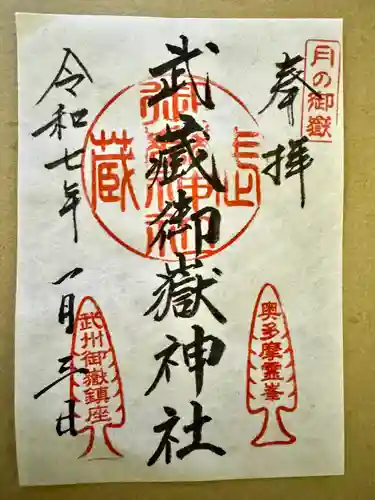 月の御嶽
奉拝
武蔵御嶽神社
奥多摩霊峯
令和七年
一月三日
武州御嶽鎮座
武蔵